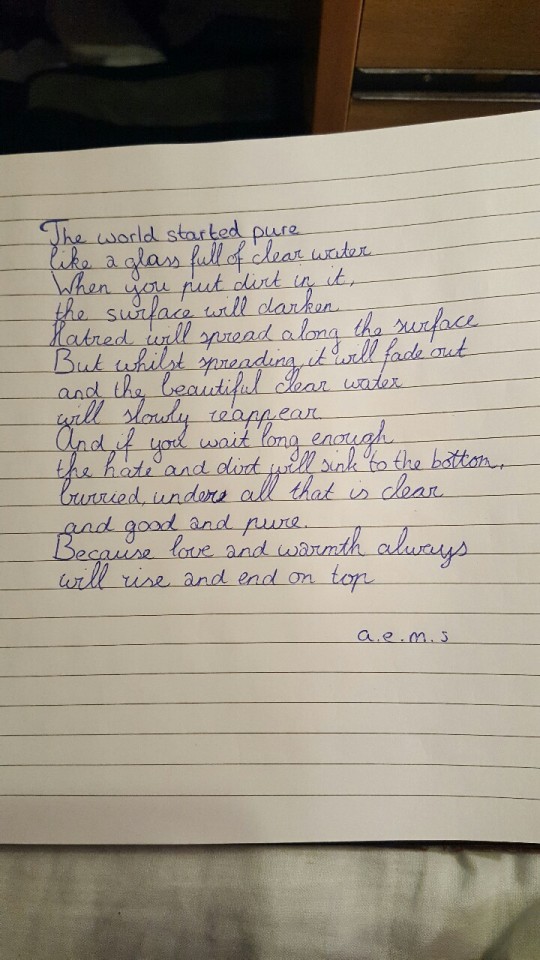 The world started pure
like a glass full of clear water
When you put dirt in it,
the surface will darken.
Hatred will spread along the surface
But whilst spreading, it will fade out
and the beautiful clear water
will slowly reappear
And if you wait long enough
the hate and dirt will sink to the bottom,
burried, under all that is clear
and good and pure.
Because love and warmth always
will rise and end on top
a.e.m.s